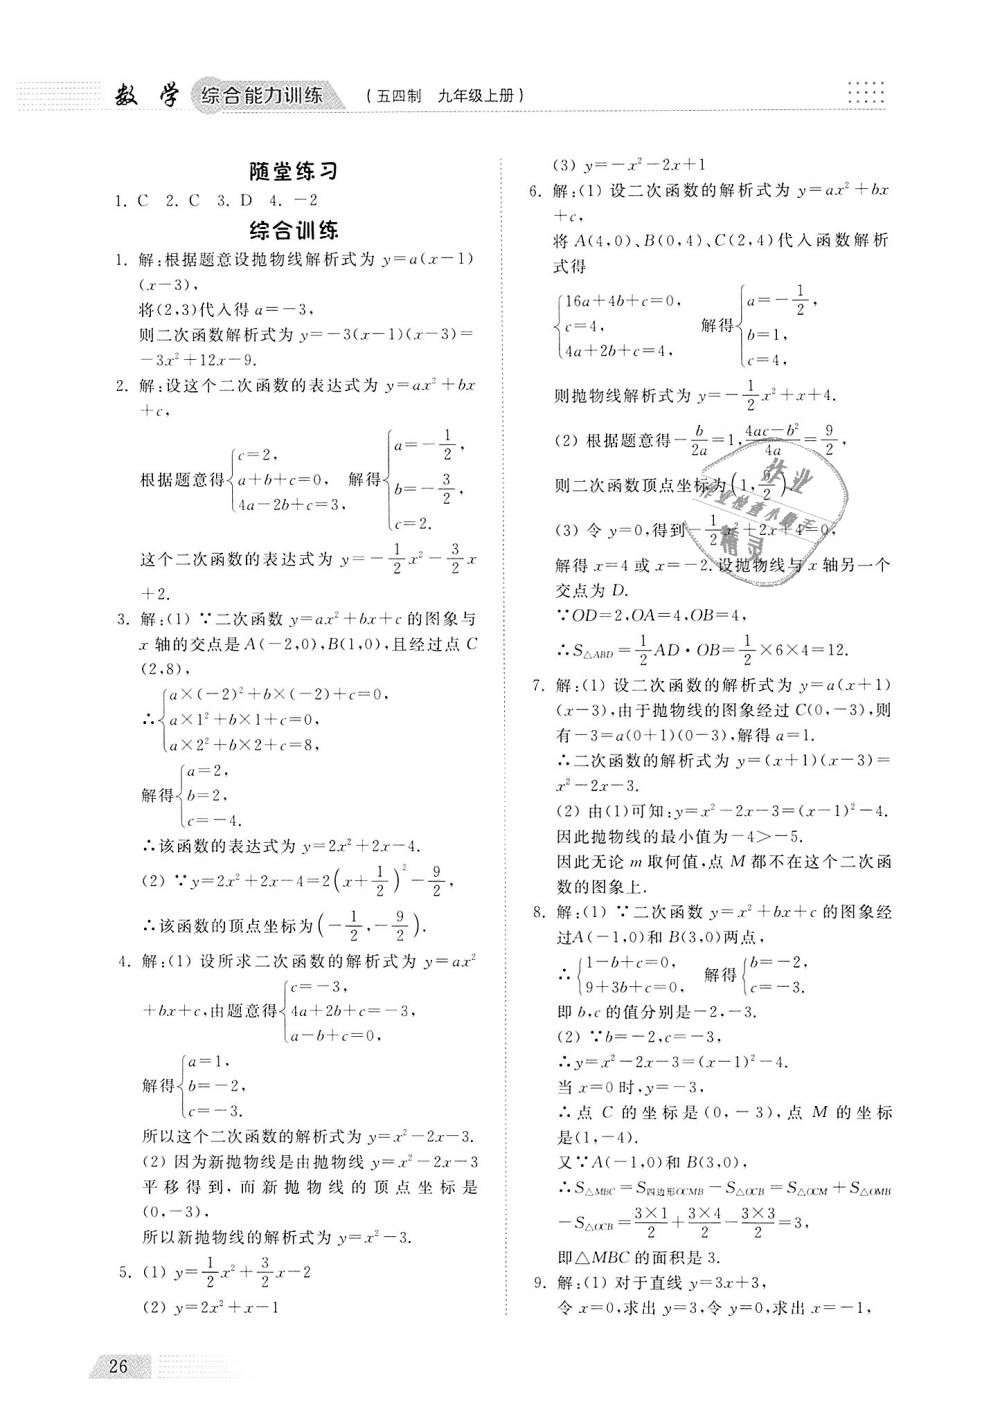 数 学 综合能力训练 (五四制 九年级上册)
随堂练习
1. C 2. C 3. D 4. －2
综合训练
1. 解:根据题意设抛物线解析式为 y=a(x－1)
(x－3),
将(2,3)代入得 a=－3,
则二次函数解析式为 y=－3(x－1)(x－3)=
－3x²＋12x－9.
2. 解:设这个二次函数的表达式为 y=ax²＋bx
＋c,
根据题意得{c=2, a＋b＋c=0, 4a－2b＋c=3, 解得{a=－1/2, b=－3/2, c=2.
这个二次函数的表达式为 y=－1/2x²－3/2x
＋2.
3. 解:(1) ∵二次函数 y=ax²＋bx＋c 的图象与
x 轴的交点是 A(－2,0),B(1,0),且经过点 C
(2,8),
∴{a×(－2)²＋b×(－2)＋c=0, a×1²＋b×1＋c=0, a×2²＋b×2＋c=8,
解得{a=2, b=2, c=－4.
∴该函数的表达式为 y=2x²＋2x－4.
(2) ∵y=2x²＋2x－4=2(x＋1/2)²－9/2,
∴该函数的顶点坐标为(－1/2,－9/2).
4. 解:(1) 设所求二次函数的解析式为 y=ax²
＋bx＋c,由题意得{c=－3, 4a＋2b＋c=－3, a－b＋c=0,
解得{a=1, b=－2, c=－3.
所以这个二次函数的解析式为 y=x²－2x－3.
(2) 因为新抛物线是由抛物线 y=x²－2x－3
平移得到,而新抛物线的顶点坐标是
(0,－3),
所以新抛物线的解析式为 y=x²－3.
5. (1) y=1/2x²＋3/2x－2
(2) y=2x²＋x－1
(3) y=－x²－2x＋1
6. 解:(1) 设二次函数的解析式为 y=ax²＋bx
＋c,
将 A(4,0)、B(0,4)、C(2,4)代入函数解析
式得
{16a＋4b＋c=0, c=4, 4a＋2b＋c=4, 解得{a=－1/2, b=1, c=4,
则抛物线解析式为 y=－1/2x²＋x＋4.
(2) 根据题意得－b/2a=1,4ac－b²/4a=9/2,
则二次函数顶点坐标为(1,9/2).
(3) 令 y=0,得到－1/2x²＋2x＋4=0,
解得 x=4 或 x=－2.设抛物线与 x 轴另一个
交点为 D.
∵OD=2,OA=4,OB=4,
∴S△ABD=1/2AD·OB=1/2×6×4=12.
7. 解:(1) 设二次函数的解析式为 y=a(x＋1)
(x－3),由于抛物线的图象经过 C(0,－3),则
有－3=a(0＋1)(0－3),解得 a=1.
∴二次函数的解析式为 y=(x＋1)(x－3)=
x²－2x－3.
(2) 由(1)可知:y=x²－2x－3=(x－1)²－4.
因此抛物线的最小值为－4>－5.
因此无论 m 取何值,点 M 都不在这个二次函
数的图象上.
8. 解:(1) ∵二次函数 y=x²＋bx＋c 的图象经
过A(－1,0)和 B(3,0)两点,
∴{1－b＋c=0, 9＋3b＋c=0, 解得{b=－2, c=－3.
即 b,c 的值分别是－2,－3.
(2) ∵b=－2,c=－3,
∴y=x²－2x－3=(x－1)²－4.
当 x=0 时,y=－3,
∴点 C 的坐标是(0,－3),点 M 的坐标
是(1,－4).
又∵A(－1,0)和 B(3,0),
∴S△MBC=S四边形OCMB－S△OCB=S△OCM＋S△OMB
－S△OCB=3×1/2＋3×4/2－3×3/2=3,
即△MBC 的面积是 3.
9. 解:(1) 对于直线 y=3x＋3,
令 x=0,求出 y=3,令 y=0,求出 x=－1,
26
作业
作业检查小助手
精灵